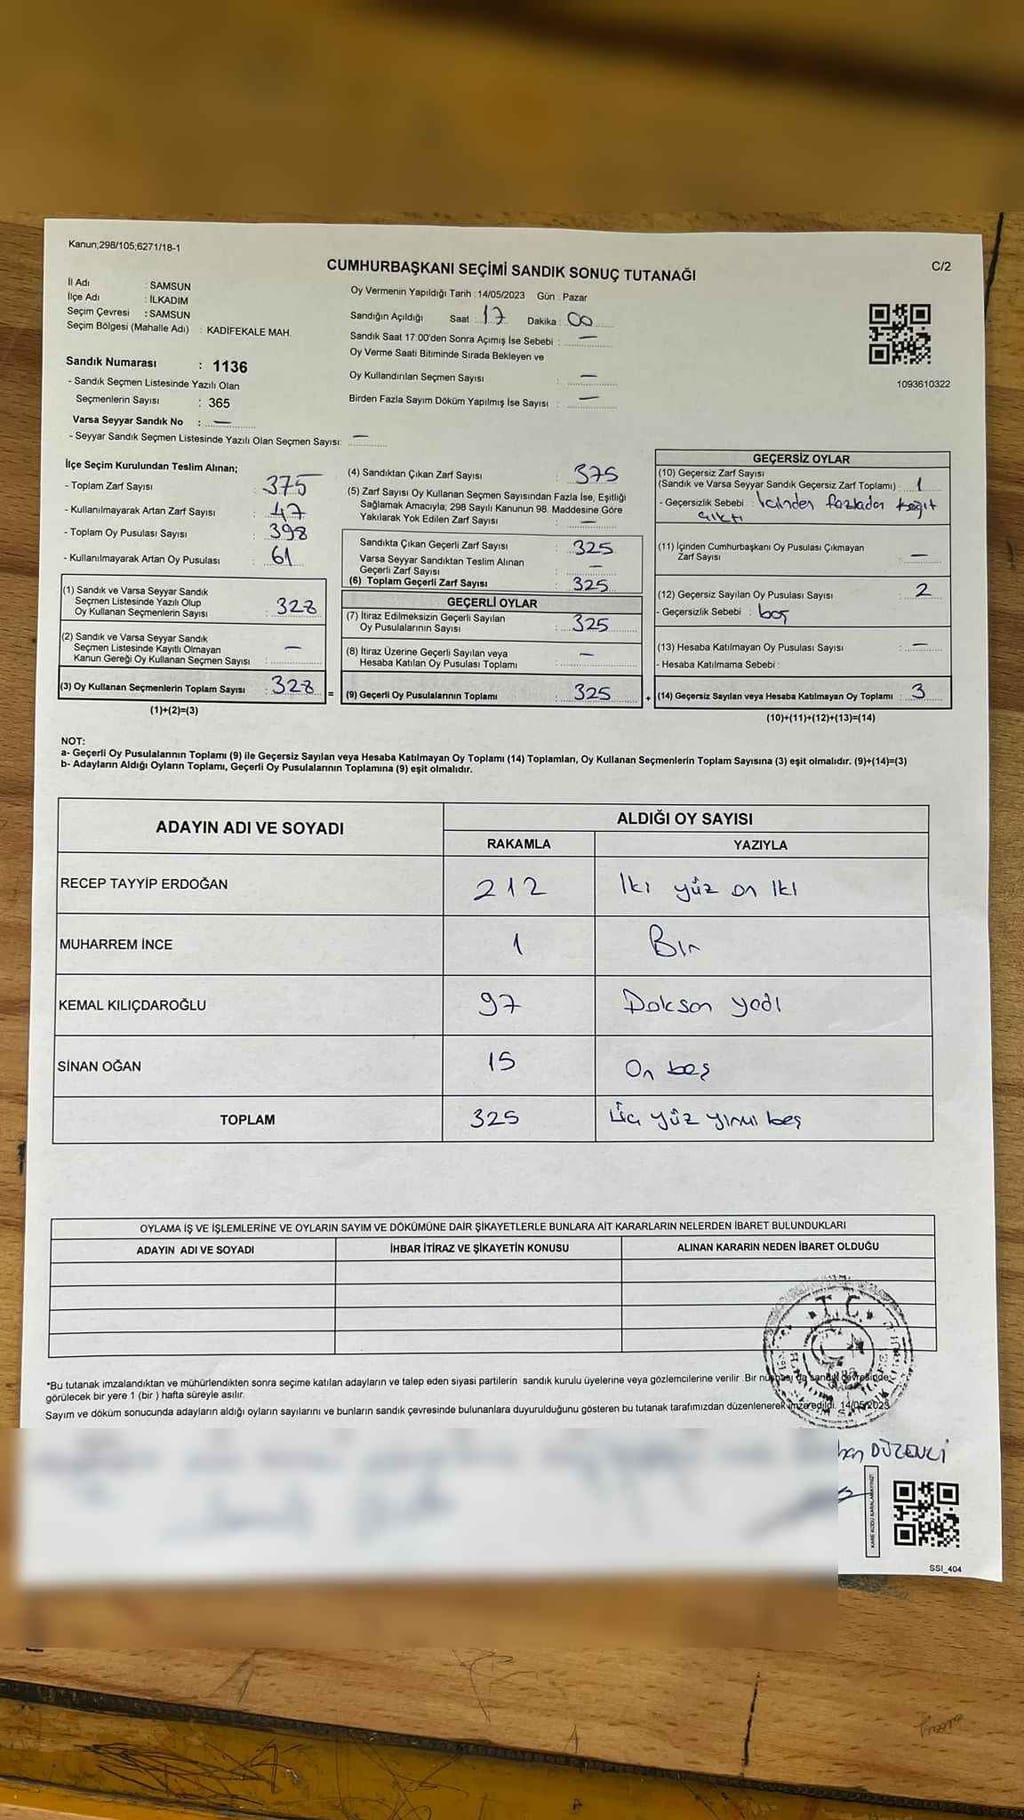 Kanun,298/105,6271/18-1
C/2
CUMHURBAŞKANI SEÇİMİ SANDIK SONUÇ TUTANAĞI
İl Adı : SAMSUN
İlçe Adı : İLKADIM
Seçim Çevresi : SAMSUN
Seçim Bölgesi (Mahalle Adı) : KADIFEKALE MAH.
Sandık Numarası : 1136
- Sandık Seçmen Listesinde Yazılı Olan
Seçmenlerin Sayısı : 365
Varsa Seyyar Sandık No : —
- Seyyar Sandık Seçmen Listesinde Yazılı Olan Seçmen Sayısı: —
Oy Vermenin Yapıldığı Tarih : 14/05/2023 Gün : Pazar
Sandığın Açıldığı Saat 17 Dakika : 00
Sandık Saat 17:00'den Sonra Açımış İse Sebebi : —
Oy Verme Saati Bitiminde Sırada Bekleyen ve
Oy Kullandırılan Seçmen Sayısı : —
Birden Fazla Sayım Döküm Yapılmış İse Sayısı : —
1093610322
İlçe Seçim Kurulundan Teslim Alınan;
- Toplam Zarf Sayısı : 375
- Kullanılmayarak Artan Zarf Sayısı : 47
- Toplam Oy Pusulası Sayısı : 398
- Kullanılmayarak Artan Oy Pusulası : 61
(1) Sandık ve Varsa Seyyar Sandık
Seçmen Listesinde Yazılı Olup
Oy Kullanan Seçmenlerin Sayısı : 328
(2) Sandık ve Varsa Seyyar Sandık
Seçmen Listesinde Kayıtlı Olmayan
Kanun Gereği Oy Kullanan Seçmen Sayısı : —
(3) Oy Kullanan Seçmenlerin Toplam Sayısı : 328 =
(1)+(2)=(3)
(4) Sandıktan Çıkan Zarf Sayısı : 375
(5) Zarf Sayısı Oy Kullanan Seçmen Sayısından Fazla İse, Eşitliği
Sağlamak Amacıyla, 298 Sayılı Kanunun 98. Maddesine Göre
Yakılarak Yok Edilen Zarf Sayısı : —
Sandıkta Çıkan Geçerli Zarf Sayısı : 325
Varsa Seyyar Sandıktan Teslim Alınan
Geçerli Zarf Sayısı : —
(6) Toplam Geçerli Zarf Sayısı : 325
GEÇERLİ OYLAR
(7) İtiraz Edilmeksizin Geçerli Sayılan
Oy Pusulalarının Sayısı : 325
(8) İtiraz Üzerine Geçerli Sayılan veya
Hesaba Katılan Oy Pusulası Toplamı : —
(9) Geçerli Oy Pusulalarının Toplamı : 325 +
GEÇERSİZ OYLAR
(10) Geçersiz Zarf Sayısı
(Sandık ve Varsa Seyyar Sandık Geçersiz Zarf Toplamı) : 1
- Geçersizlik Sebebi : İcinden fazladan kağıt
çıktı
(11) İçinden Cumhurbaşkanı Oy Pusulası Çıkmayan
Zarf Sayısı : —
(12) Geçersiz Sayılan Oy Pusulası Sayısı : 2
- Geçersizlik Sebebi : boş
(13) Hesaba Katılmayan Oy Pusulası Sayısı : —
- Hesaba Katılmama Sebebi :
(14) Geçersiz Sayılan veya Hesaba Katılmayan Oy Toplamı : 3
(10)+(11)+(12)+(13)=(14)
NOT:
a- Geçerli Oy Pusulalarının Toplamı (9) ile Geçersiz Sayılan veya Hesaba Katılmayan Oy Toplamı (14) Toplamları, Oy Kullanan Seçmenlerin Toplam Sayısına (3) eşit olmalıdır. (9)+(14)=(3)
b- Adayların Aldığı Oyların Toplamı, Geçerli Oy Pusulalarının Toplamına (9) eşit olmalıdır.
ADAYIN ADI VE SOYADI ALDIĞI OY SAYISI
RAKAMLA YAZIYLA
RECEP TAYYİP ERDOĞAN 212 İki yüz on iki
MUHARREM İNCE 1 Bir
KEMAL KILIÇDAROĞLU 97 Doksan yedi
SİNAN OĞAN 15 On beş
TOPLAM 325 Üç yüz yirmi beş
OYLAMA İŞ VE İŞLEMLERİNE VE OYLARIN SAYIM VE DÖKÜMÜNE DAİR ŞİKAYETLERLE BUNLARA AİT KARARLARIN NELERDEN İBARET BULUNDUKLARI
ADAYIN ADI VE SOYADI İHBAR İTİRAZ VE ŞİKAYETİN KONUSU ALINAN KARARIN NEDEN İBARET OLDUĞU
T.C.
*Bu tutanak imzalandıktan ve mühürlendikten sonra seçime katılan adayların ve talep eden siyasi partilerin sandık kurulu üyelerine veya gözlemcilerine verilir. Bir nüshası da sandık çevresinde
görülecek bir yere 1 (bir ) hafta süreyle asılır.
Sayım ve döküm sonucunda adayların aldığı oyların sayılarını ve bunların sandık çevresinde bulunanlara duyurulduğunu gösteren bu tutanak tarafımızdan düzenlenerek imza edildi. 14/05/2023
DÜZENLİ
SSI_404